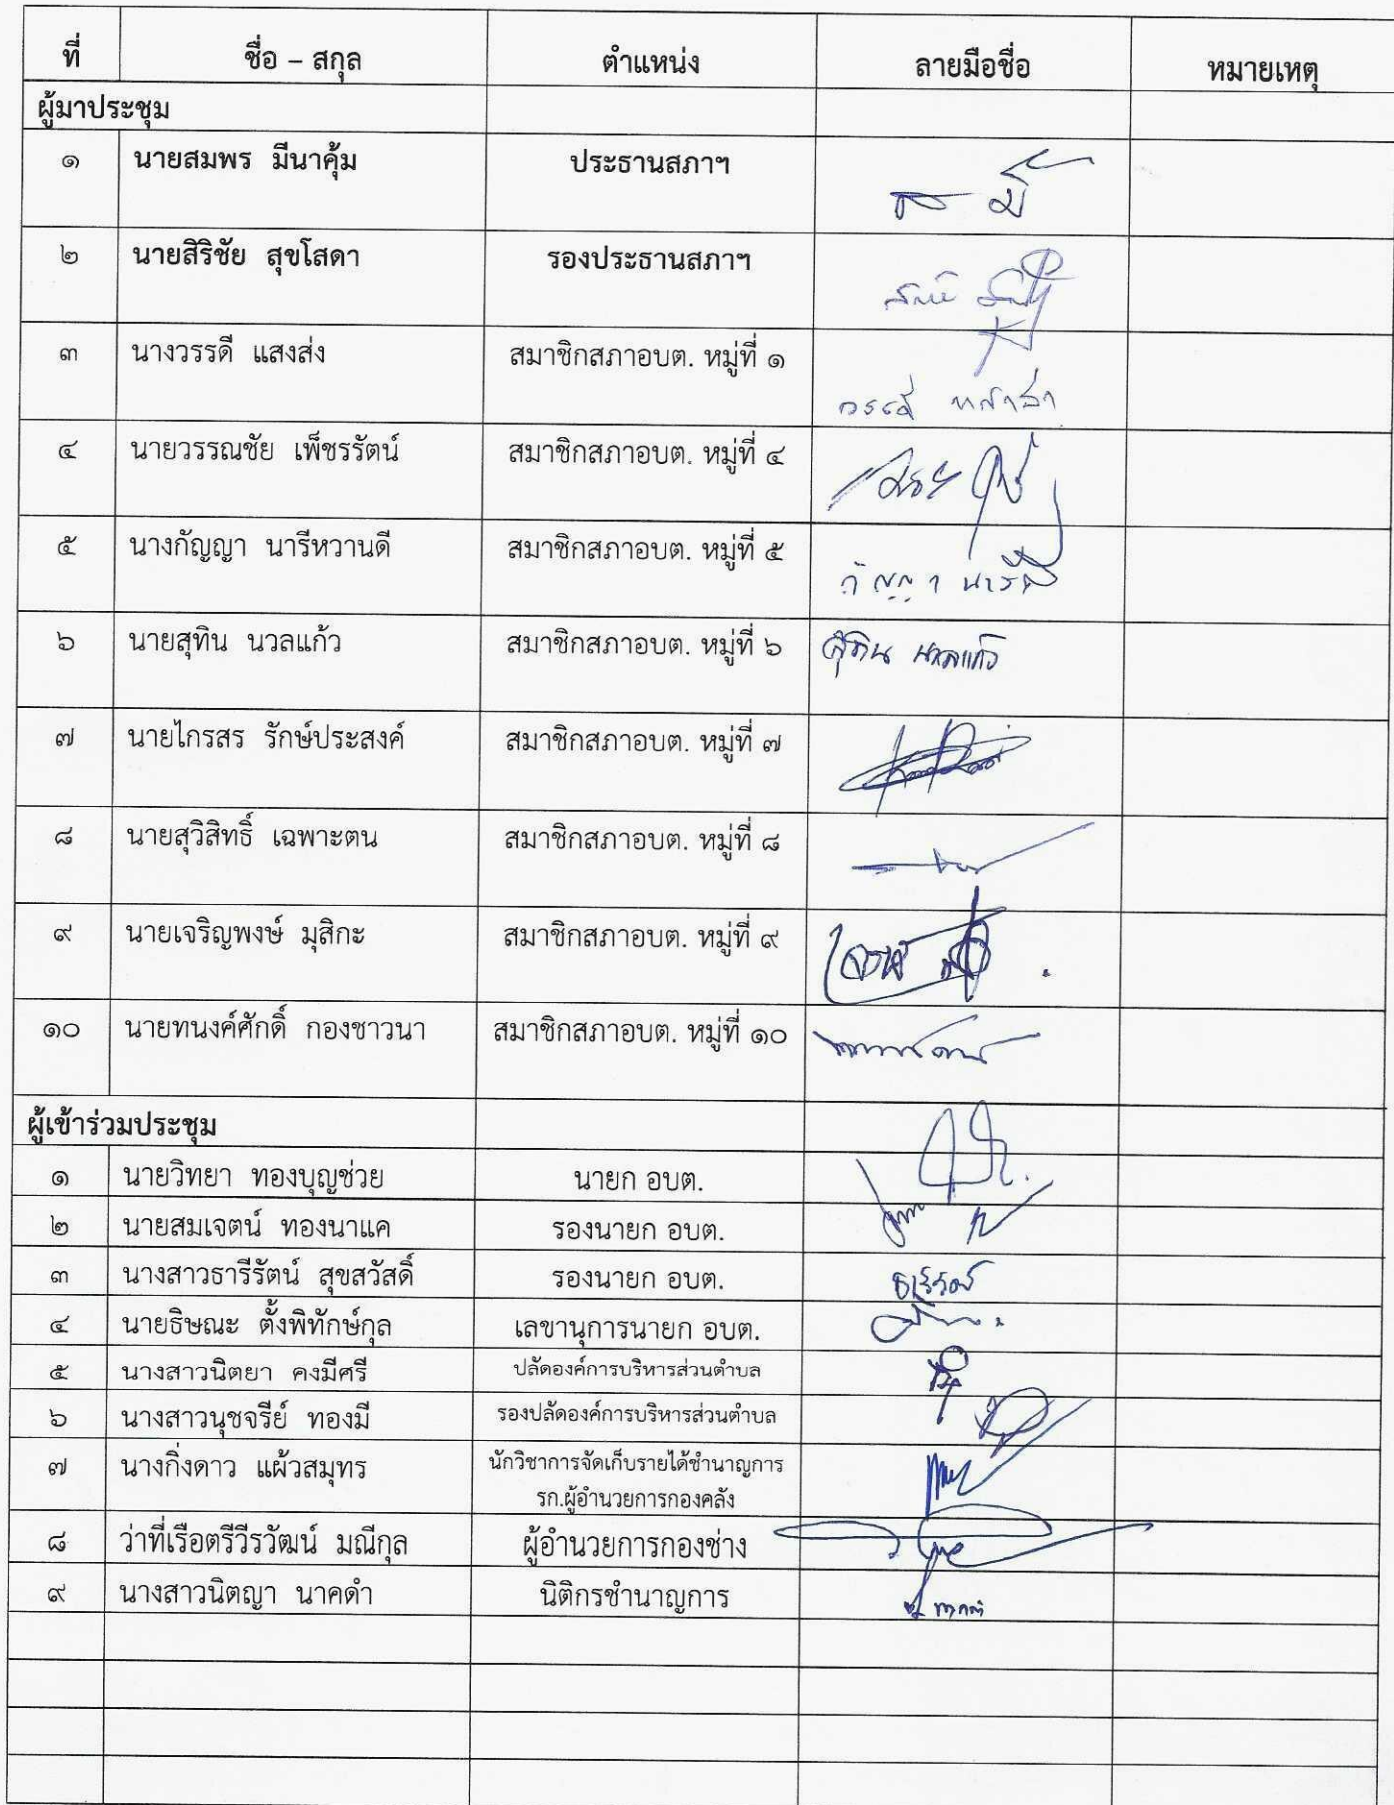 ที่ ชื่อ – สกุล ตำแหน่ง ลายมือชื่อ หมายเหตุ
ผู้มาประชุม
๑ นายสมพร มีนาคุ้ม ประธานสภาฯ
๒ นายสิริชัย สุขโสดา รองประธานสภาฯ
๓ นางวรรดี แสงส่ง สมาชิกสภาอบต. หมู่ที่ ๑
๔ นายวรรณชัย เพ็ชรรัตน์ สมาชิกสภาอบต. หมู่ที่ ๔
๕ นางกัญญา นารีหวานดี สมาชิกสภาอบต. หมู่ที่ ๕
๖ นายสุทิน นวลแก้ว สมาชิกสภาอบต. หมู่ที่ ๖ สุทิน นวลแก้ว
๗ นายไกรสร รักษ์ประสงค์ สมาชิกสภาอบต. หมู่ที่ ๗
๘ นายสุวิสิทธิ์ เฉพาะตน สมาชิกสภาอบต. หมู่ที่ ๘
๙ นายเจริญพงษ์ มุสิกะ สมาชิกสภาอบต. หมู่ที่ ๙
๑๐ นายทนงค์ศักดิ์ กองชาวนา สมาชิกสภาอบต. หมู่ที่ ๑๐
ผู้เข้าร่วมประชุม
๑ นายวิทยา ทองบุญช่วย นายก อบต.
๒ นายสมเจตน์ ทองนาแค รองนายก อบต.
๓ นางสาวธารีรัตน์ สุขสวัสดิ์ รองนายก อบต.
๔ นายธิษณะ ตั้งพิทักษ์กุล เลขานุการนายก อบต.
๕ นางสาวนิตยา คงมีศรี ปลัดองค์การบริหารส่วนตำบล
๖ นางสาวนุชจรีย์ ทองมี รองปลัดองค์การบริหารส่วนตำบล
๗ นางกิ่งดาว แผ้วสมุทร นักวิชาการจัดเก็บรายได้ชำนาญการ
รก.ผู้อำนวยการกองคลัง
๘ ว่าที่เรือตรีวีรวัฒน์ มณีกุล ผู้อำนวยการกองช่าง
๙ นางสาวนิตญา นาคดำ นิติกรชำนาญการ